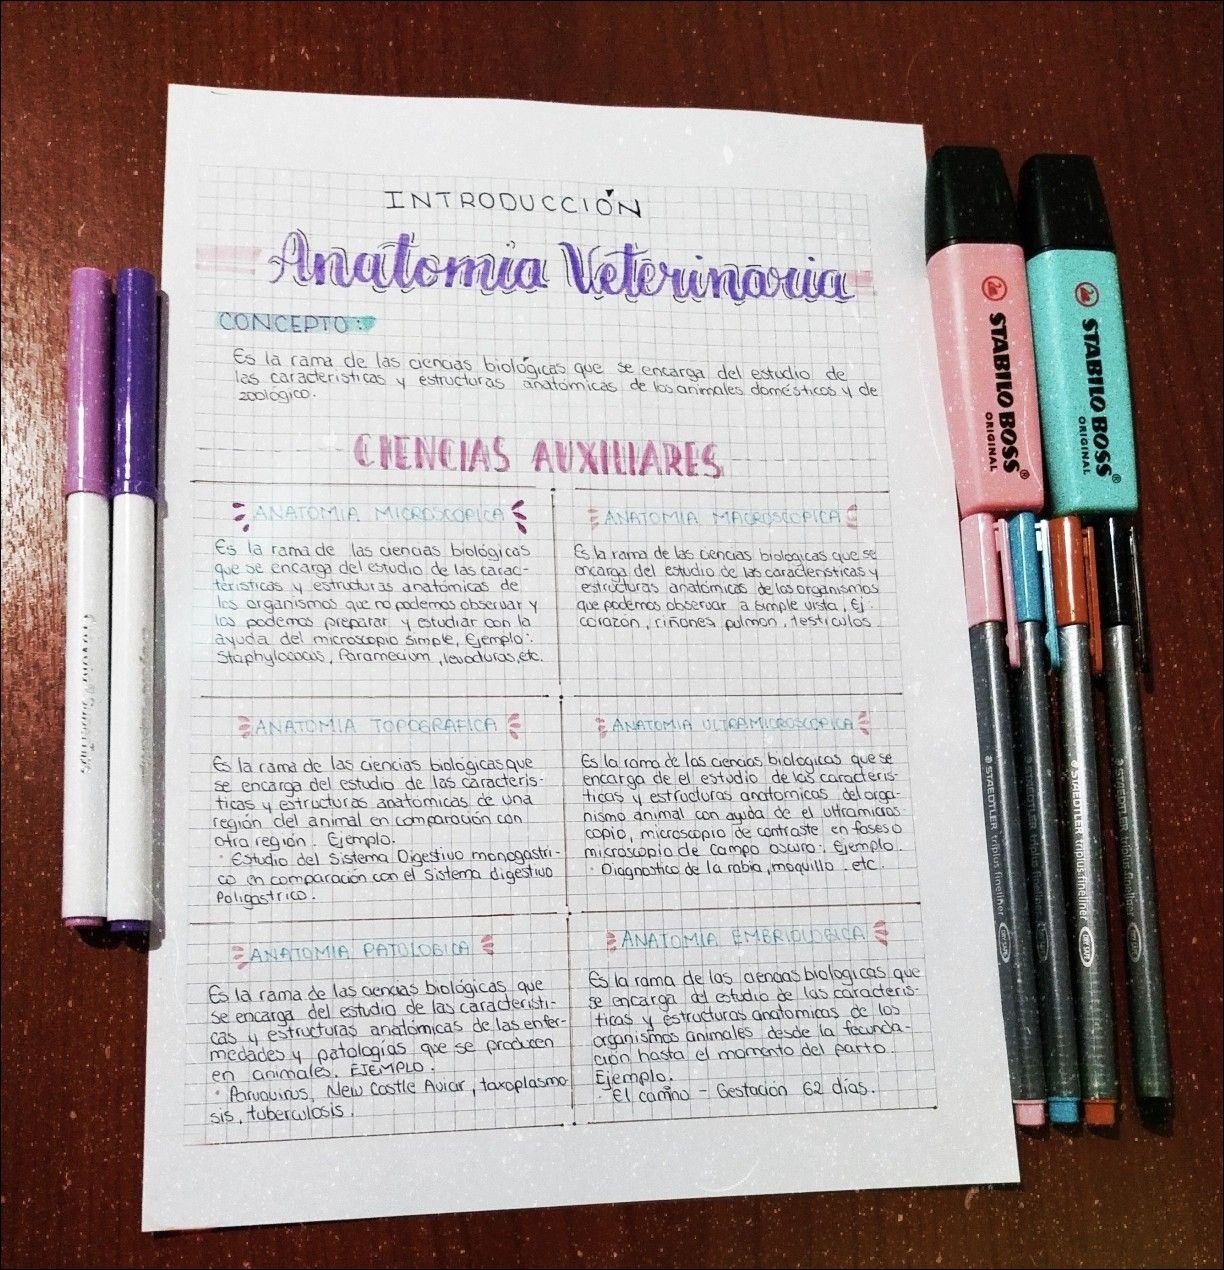 INTRODUCCIÓN
Anatomia Veterinaria
CONCEPTO:
Es la rama de las ciencias biológicas que se encarga del estudio de
las caracteristicas y estructuras anatómicas de los animales domésticos y de
zoológico.
CIENCIAS AUXILIARES
ANATOMIA MICROSCOPICA
Es la rama de las ciencias biológicas
que se encarga del estudio de las carac-
teristicas y estructuras anatómicas de
los organismos que no podemos observar y
los podemos preparar y estudiar con la
ayuda del microscopio simple, Ejemplo:
Staphylococus, Paramecium, levaduras, etc.
ANATOMIA MACROSCOPICA
Es la rama de las ciencias biologicas que se
encarga del estudio de las caracteristicas y
estructuras anatómicas de los organismos
que podemos observar a simple vista, Ej:
corazón, riñones pulmon, testiculos
ANATOMIA TOPOGRAFICA
Es la rama de las ciencias biológicas que
se encarga del estudio de las caracteris-
ticas y estructuras anatómicas de una
región del animal en comparación con
otra región. Ejemplo.
· Estudio del Sistema Digestivo monogastri-
co en comparación con el Sistema digestivo
Poligastrico.
ANATOMIA ULTRAMICROSCOPICA
Es la rama de las ciencias biologicas que se
encarga de el estudio de las caracteris-
ticas y estructuras anatomicas del orga-
nismo animal con ayuda de el ultramicros-
copio, microscopio de contraste en fases o
microscopio de campo oscuro. Ejemplo.
· Diagnostico de la rabia, moquillo. etc.
ANATOMIA PATOLOGICA
Es la rama de las ciencias biológicas que
se encarga del estudio de las caracteristi-
cas y estructuras anatómicas de las enfer-
medades y patologías que se producen
en animales. EJEMPLO.
· Parvovirus, New Castle Aviar, toxoplasmo
sis, tuberculosis.
ANATOMIA EMBRIOLOGICA
Es la rama de las ciencias biologicas que
se encarga del estudio de las caracteris-
ticas y estructuras anatomicas de los
organismos animales desde la fecunda-
ción hasta el momento del parto.
Ejemplo.
· El camino - Gestación 62 días.
STABILO BOSS®
ORIGINAL
STABILO BOSS®
ORIGINAL
STAEDTLER triplus fineliner DRY SAFE
STAEDTLER triplus fineliner
STAEDTLER triplus fineliner DRY SAFE
STAEDTLER triplus fineliner